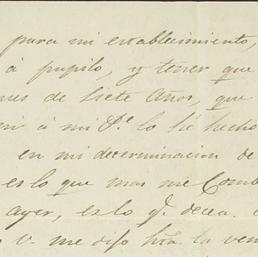 para mi establecimiento,
á pupilo, y tener que
de siete años, que
á mi Pe. lo hé hecho
en mi determinacion de
es lo que mas me Comb
ayer, es lo q. decea.
V. me dijo la